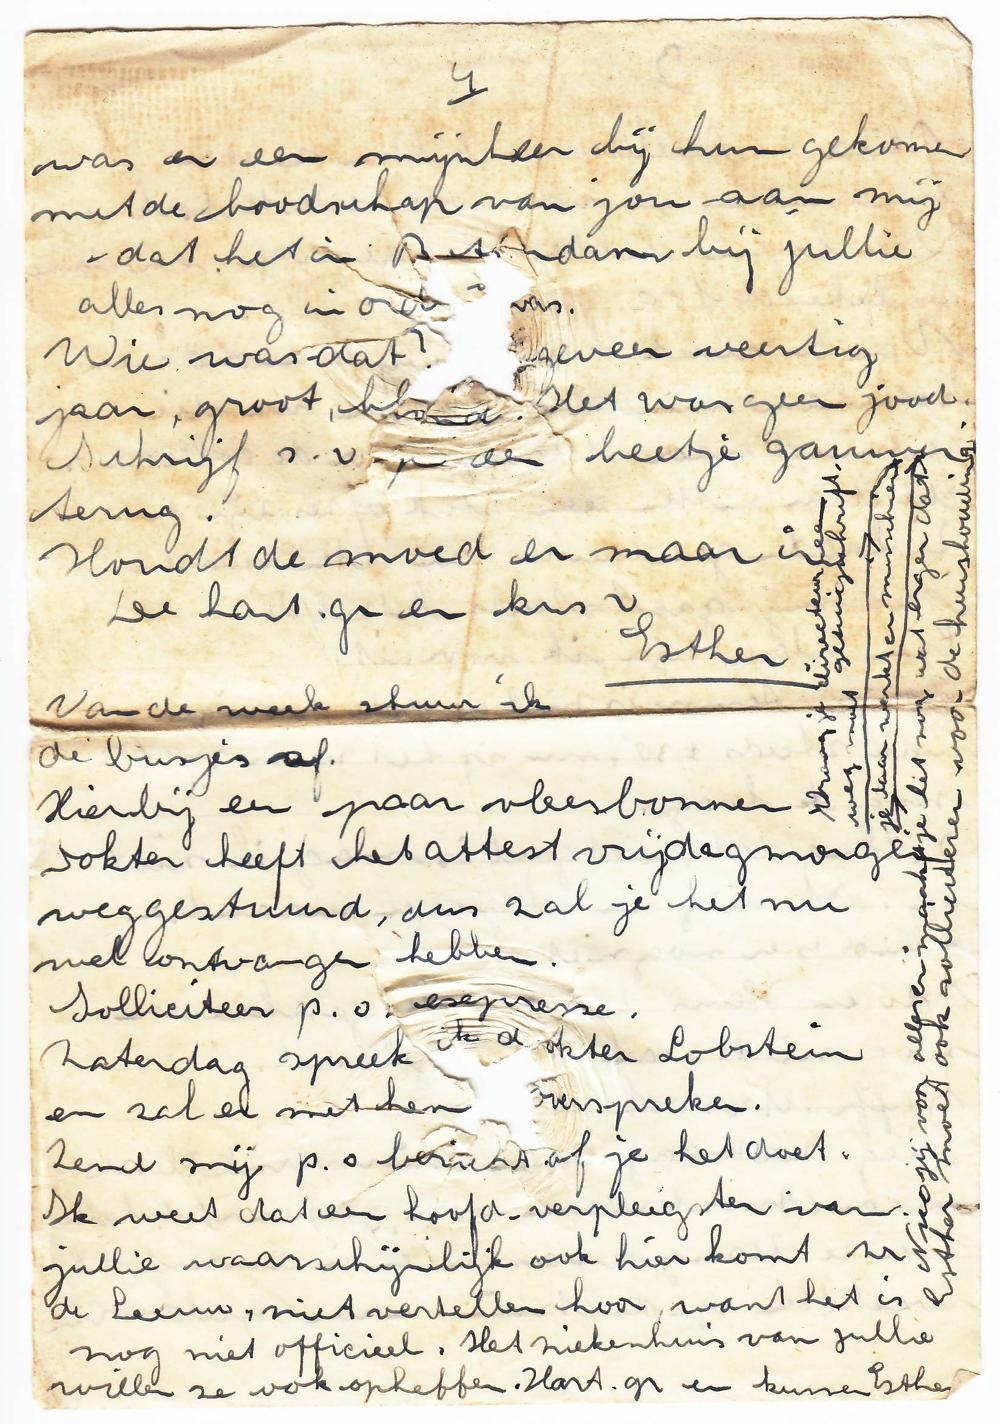 4
was er een mijnheer bij hun gekomen
met de boodschap van jou aan mij
- dat het in R tt rdam bij jullie
alles nog in ord was.
Wie was dat? geveer veertig
jaar, groot, blond. Het was geen jood.
Schrijf s.v.p een beetje gauw
terug.
Houdt de moed er maar in
De hart. gr en kus v
Esther
Van de week stuur ik
de busjes af.
Hierbij een paar vleesbonnen
Dokter heeft het attest vrijdagmorgen
weggestuurd, dus zal je het nu
wel ontvangen hebben.
Solliciteer p.o. expresse.
Zaterdag spreek ik dokter Lobstein
en zal er met hem overspreken.
Zend mij p.o bericht of je het doet.
Ik weet dat een hoofd-verpleegster van
jullie waarschijnlijk ook hier komt zr
de Leeuw, niet vertellen hoor, want het is
nog niet officieel. Het ziekenhuis van jullie
willen ze ook opheffen. Hart. gr en kussen Esther
Vraag je directeur een
getuigschrift,
weg moet
je daar werkt en misschien
je liet nog wat erger dat
Esther moet ook solliciteren voor de huishouding.